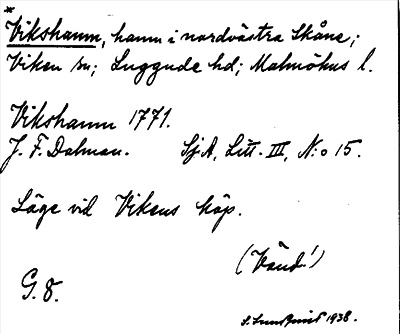 *
Vikshamn, hamn i nordvästra Skåne;
Viken sn; Luggude hd; Malmöhus l.
Vikshamn 1771.
J. F. Dalman. SjA, Litt. III, N:o 15.
Läge vid Vikens köp.
(Vänd!)
G. 8.
S. Sundquist 1938.